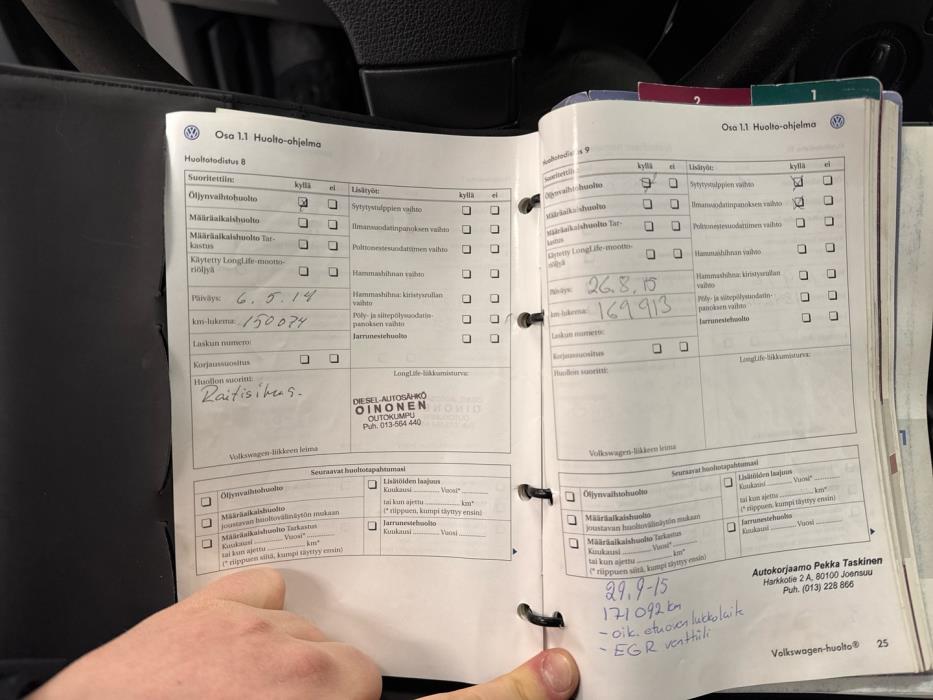 2
1
Osa 1.1 Huolto-ohjelma
Huoltotodistus 8
Suoritettiin:
kyllä ei
Öljynvaihtohuolto
Määräaikaishuolto
Määräaikaishuolto Tar-
kastus
Käytetty LongLife-mootto-
riöljyä
Päiväys: 6.5.14
km-lukema: 150074
Laskun numero:
Korjaussuositus
Lisätyöt:
kyllä ei
Sytytystulppien vaihto
Ilmansuodatinpanoksen vaihto
Polttonestesuodattimen vaihto
Hammashihnan vaihto
Hammashihna: kiristysrullan
vaihto
Pöly- ja siitepölysuodatin-
panoksen vaihto
Jarrunestehuolto
Huollon suoritti:
Raitisilmas.
Volkswagen-liikkeen leima
LongLife-liikkumisturva:
DIESEL-AUTOSÄHKÖ
OINONEN
OUTOKUMPU
Puh. 013-564 440
Seuraavat huoltotapahtumasi
Öljynvaihtohuolto
Määräaikaishuolto
joustavan huoltovälinäytön mukaan
Määräaikaishuolto Tarkastus
Kuukausi ............ Vuosi* ............
tai kun ajettu ............ km*
(* riippuen siitä, kumpi täyttyy ensin)
Lisätöiden laajuus
Kuukausi ............ Vuosi* ............
tai kun ajettu ............ km*
(* riippuen, kumpi täyttyy ensin)
Jarrunestehuolto
Kuukausi ............ Vuosi ............
Osa 1.1 Huolto-ohjelma
Huoltotodistus 9
Suoritettiin:
kyllä ei
Öljynvaihtohuolto
Määräaikaishuolto
Määräaikaishuolto Tar-
kastus
Käytetty LongLife-mootto-
riöljyä
Päiväys: 26.8.15
km-lukema: 169913
Laskun numero:
Korjaussuositus
Lisätyöt:
kyllä ei
Sytytystulppien vaihto
Ilmansuodatinpanoksen vaihto
Polttonestesuodattimen vaihto
Hammashihnan vaihto
Hammashihna: kiristysrullan
vaihto
Pöly- ja siitepölysuodatin-
panoksen vaihto
Jarrunestehuolto
Huollon suoritti:
Volkswagen-liikkeen leima
LongLife-liikkumisturva:
Seuraavat huoltotapahtumasi
Öljynvaihtohuolto
Määräaikaishuolto
joustavan huoltovälinäytön mukaan
Määräaikaishuolto Tarkastus
Kuukausi ............ Vuosi* ............
tai kun ajettu ............ km*
(* riippuen siitä, kumpi täyttyy ensin)
Lisätöiden laajuus
Kuukausi ............ Vuosi* ............
tai kun ajettu ............ km*
(* riippuen, kumpi täyttyy ensin)
Jarrunestehuolto
Kuukausi ............ Vuosi ............
Autokorjaamo Pekka Taskinen
Harkkotie 2 A, 80100 Joensuu
Puh. (013) 228 866
29.9-15
171 092 km
- oik. etuoven lukkolaite
- EGR venttiili
Volkswagen-huolto® 25